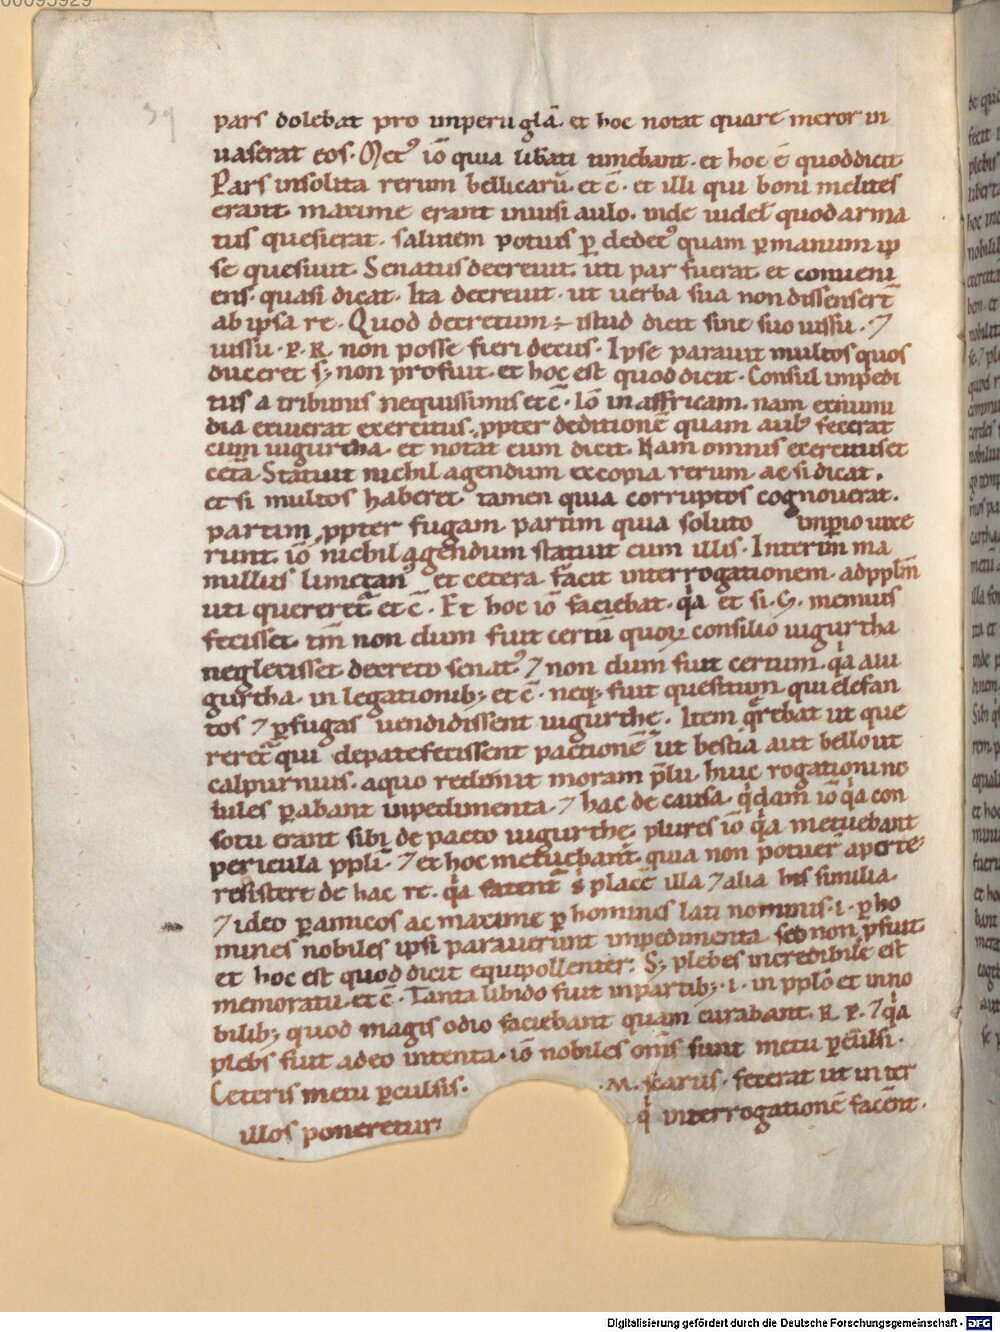 00095929
39
pars dolebat pro imperii gl̄a. et hoc notat quare meror in
uaserat eos. Met᷒ iō quia libati timebant. et hoc ē quod dicit.
Pars insolita rerum bellicarū. et c̄. et illi qui boni melites
erant. maxime erant inuisi aulo. inde uidel quod arma
tus quesierat. salutem potius ꝑ dedet᷒ quam ꝑ manum ip
se quesiuit. Senatus decreuit. uti par fuerat. et conueni
ens. quasi dicat. Ita decreuit. ut uerba sua non dissenserēt
ab ipsa re. Quod decretum ÷ istud dicit sine suo iussu. ⁊
iussu. P. R. non posse fieri decus. Ipse parauit multos quos
duceret sꝫ non profuit. et hoc est quod dicit. Consul impedi
tus a tribunis nequissimis et c̄. Iō in affricam. nam ex numi
dia exiuerat exercitus. ꝓpter deditionē quam aul᷒ fecerat
cum iugurtha. et notat cum dicit. Nam omnis exercitus et
cetā. Statuit nichil agendum ex copia rerum. ac si dicat.
et si multos haberet᷒ tamen quia corruptos cognouerat.
partim ꝓpter fugam partim quia soluto imꝑio uixe
runt. iō nichil agendum statuit cum illis. Interim ma
millius limetan᷒ et cetera. facit interrogationem. ad ppl̄m
uti quereret̄ et c̄. Et hoc iō faciebat. q̇a et si. G. memius
fecisset. tm̄ non dum fuit certū quoꝝ consilio iugurtha
neglexisset decreto senat᷒ ⁊ non dum fuit certum. q̇a a iu
gurtha. in legationibꝫ et c̄. neqꝫ fuit quesitum qui elefan
tos ⁊ ꝑfugas uendidissent iugurthe. Item q̄rebat ut que
reret̄ qui de pate fecissent pactionē ut bestia aut bello ut
calpurnius. a quo redimit moram p̄lii. huic rogationi no
biles ꝑabant inpedimenta. ⁊ hac de causa. q̇dam iō q̇a con
sotii erant sibi de pacto iugurthe. plures iō q̇a metuebant
pericula ppli. ⁊ et hoc metuebant. quia non potuer̄ aperte
resistere de hac re. q̇a fatent̄ s placē illa ⁊ alia his similia.
⁊ ideo ꝑ amicos ac maxime ꝑ homines lati nominis. i. ꝑ ho
mines nobiles ipsi parauerunt impedimenta. sed non ꝓfuit.
et hoc est quod dicit equipollenter. Sꝫ plebes incredibile est
memoratu. et c̄. Tanta libido fuit in partibꝫ. i. in pplo et in no
bilibꝫ quod magis odio faciebant quam curabant. R. P. ⁊ q̇a
plebs fuit adeo intenta. iō nobiles om̄s sunt metu ꝑculsi.
Ceteris metu ꝑculsis. .M. scarus. fecerat ut inter
illos poneretur. q̇ interrogationē facēnt.
Digitalisierung gefördert durch die Deutsche Forschungsgemeinschaft - DFG